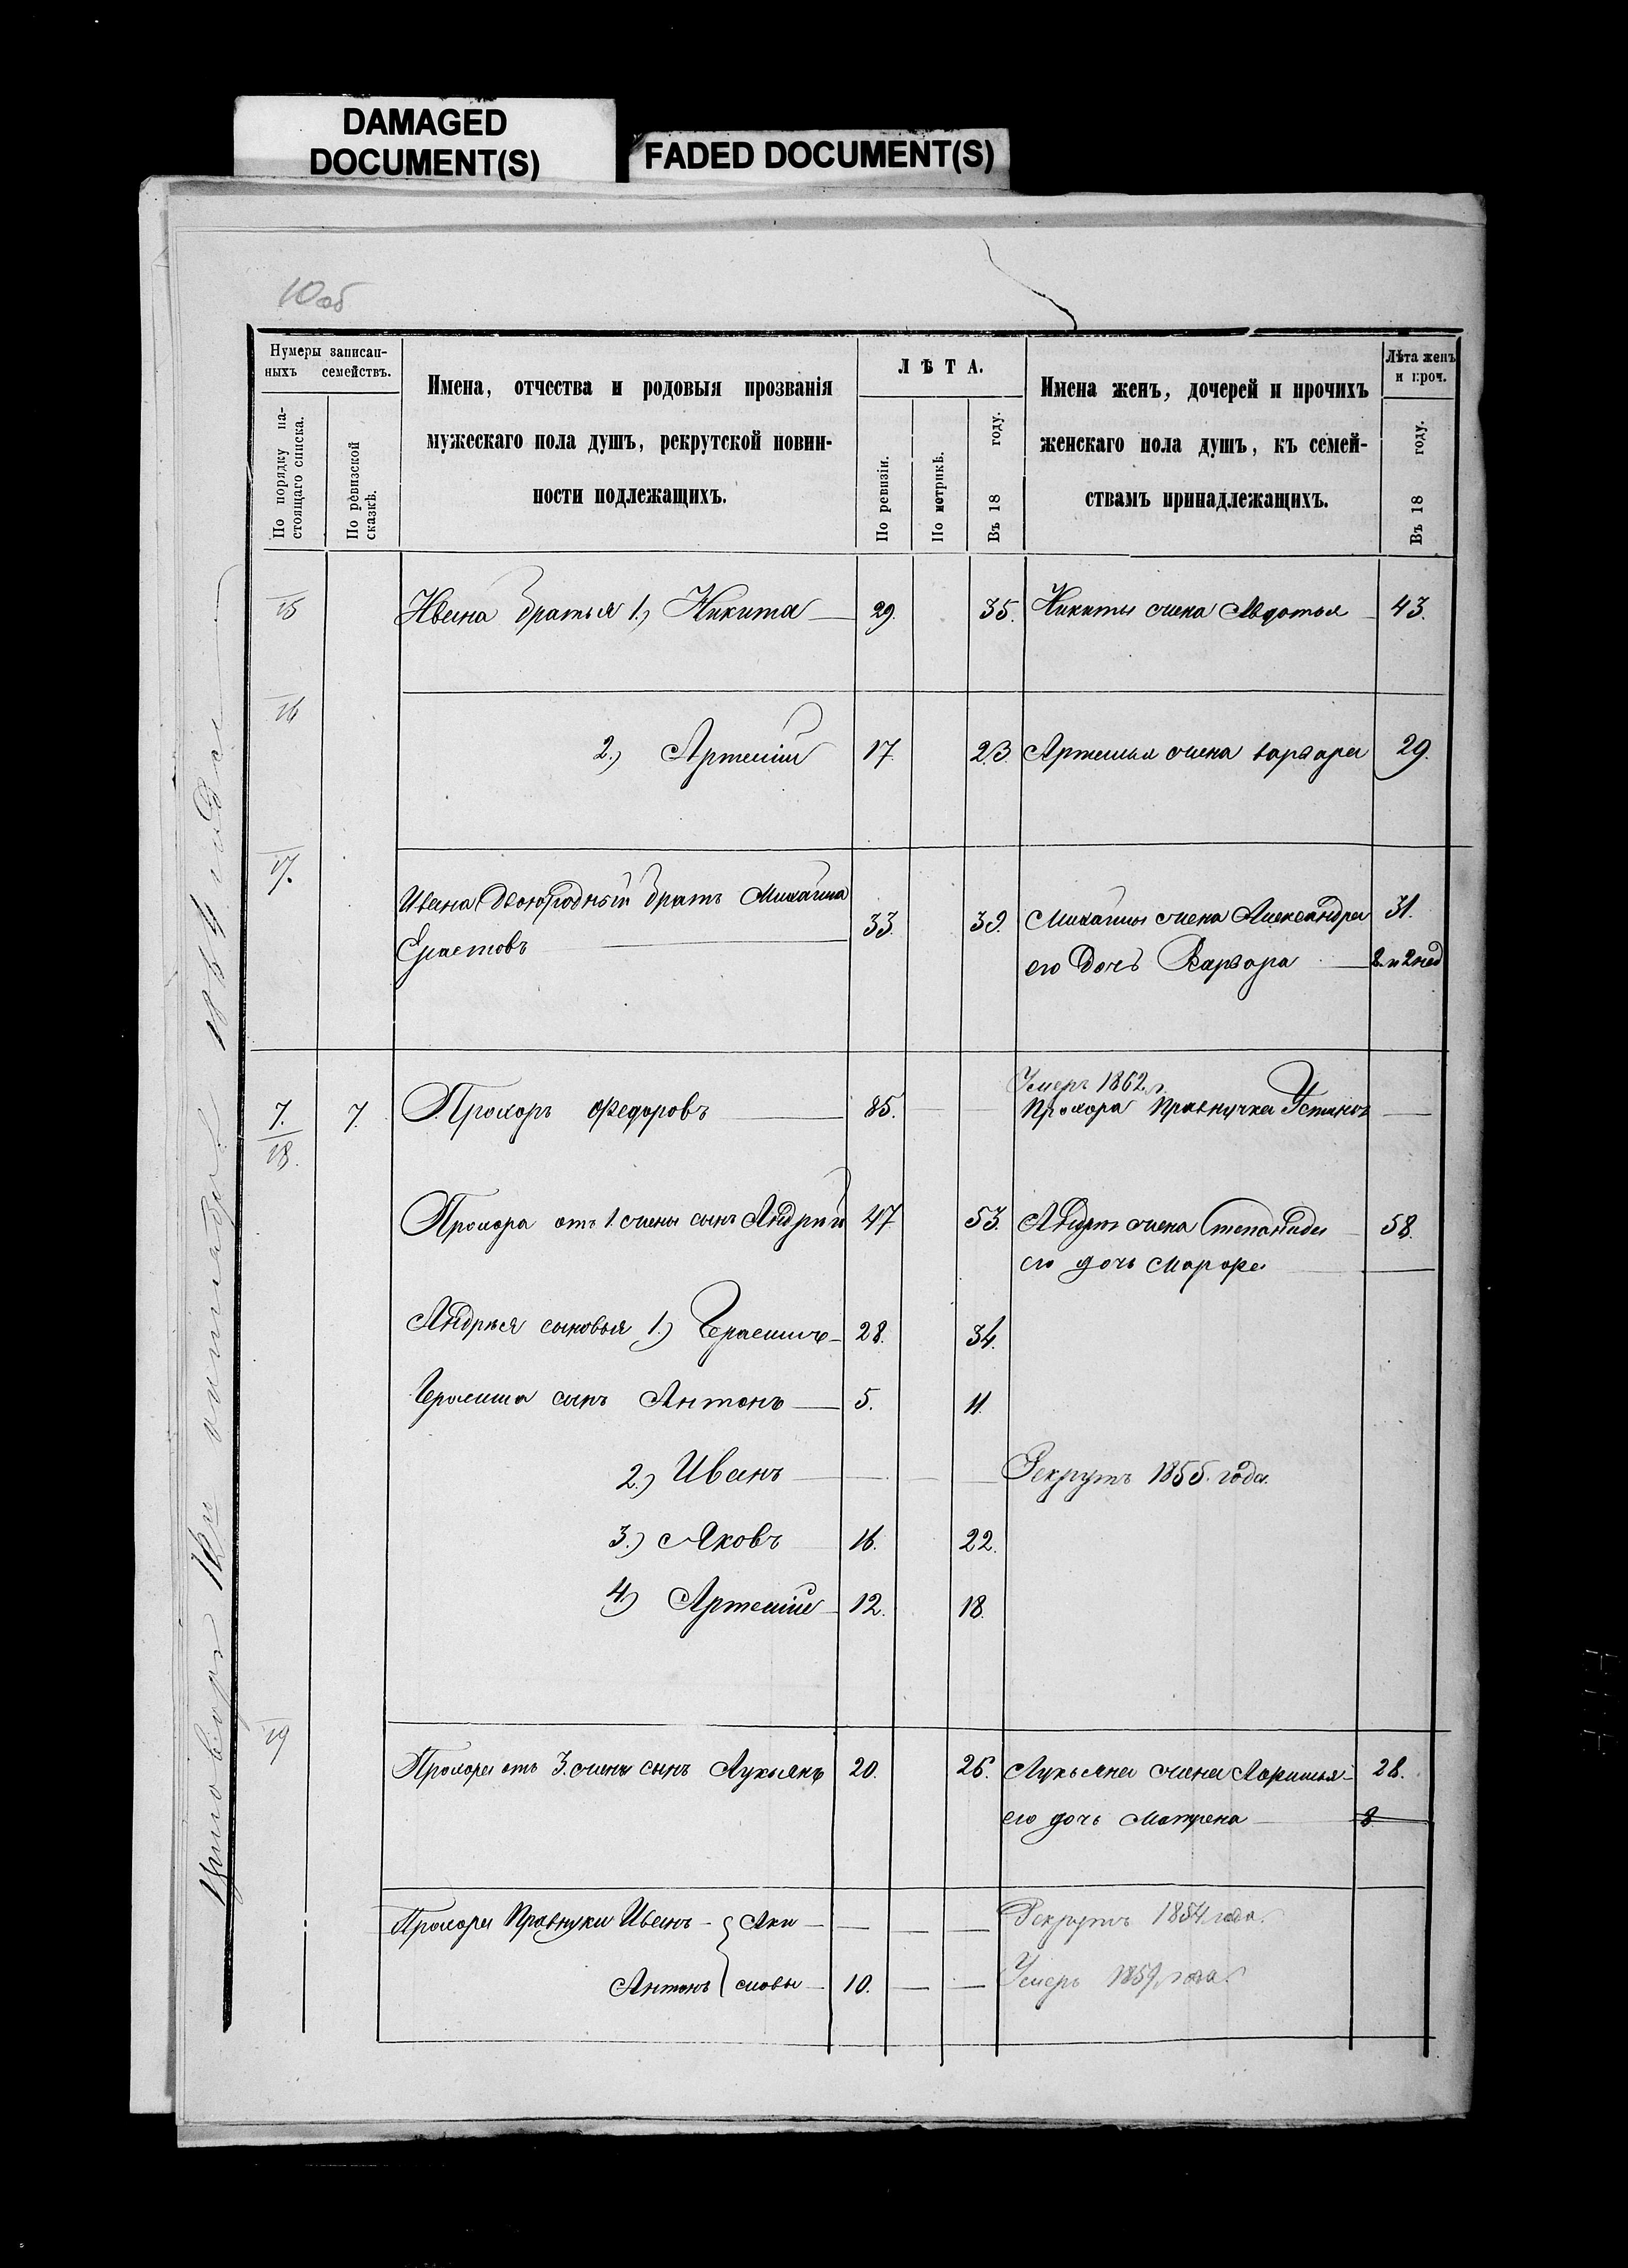 DAMAGED
DOCUMENT(S)
FADED DOCUMENT(S)
10 об
Нумеры записан-
ныхъ семействъ.
По порядку на-
стоящаго списка.
По ревизской
сказкѣ.
Имена, отчества и родовыя прозванія
мужескаго пола душъ, рекрутской повин-
ности подлежащихъ.
ЛѢТА.
По ревизіи.
По метрикѣ.
Въ 18 году.
Имена женъ, дочерей и прочихъ
женскаго пола душъ, къ семей-
ствамъ принадлежащихъ.
Лѣта женъ
и проч.
Въ 18 году.
15 Ивана братья 1.) Никита 29. 35. Никиты жена Авдотья 43.
16 2.) Артемій 17. 23. Артемья жена Варвара 29.
17. Ивана двоюродный братъ Михаила
Ерастовъ 33. 39. Михаилы жена Александра 31.
его дочь Варвара 2. и 2 нед
Умеръ 1862. г.
7. 7. Прохоръ Федоровъ 85. Прохора правнучка Устинья
18.
Прохора отъ 1. жены сынъ Андрей 47 53. Андрея жена Степанида 58.
его дочь Марфа
Андрея сыновья 1.) Герасимъ 28. 34.
Герасима сынъ Антонъ 5. 11.
2.) Иванъ Рекрутъ 1855. года.
3.) Яковъ 16. 22.
4.) Артемій 12. 18.
19 Прохора отъ 3. жены сынъ Лукьянъ 20. 26. Лукьяна жена 28.
его дочь Матрена 8
Прохора правнуки Иванъ Яки Рекрутъ 1854 года.
Антонъ мовы 10. Умеръ 1859 года.
1864 года